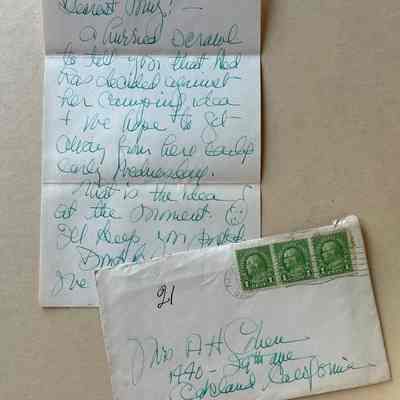 Dearest
A hurried scrawl
to tell you that
has decided against
her camping idea
+ we hope to get
away from here early
early Wednesday.
That is the idea
at the moment.
I'll keep you posted
21
Mrs A H Cohen
1440 -
Oakland California
1 1 1